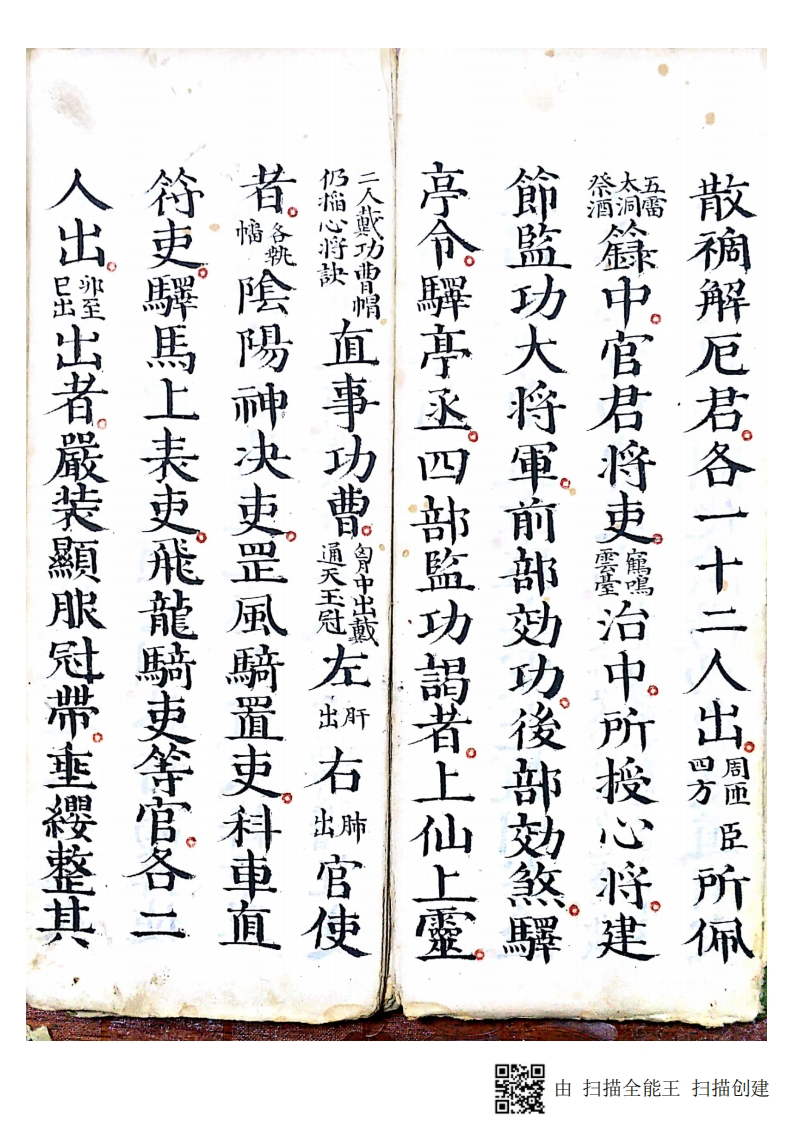 散禍解厄君。各一十二人出。周匝四方臣所佩
五雷太洞祭酒籙中。官君將吏。鶴鳴雲臺治中。所授心將。建
節監功大將軍。前部効功。後部効煞。驛
亭令。驛亭丞。四部監功謁者。上仙上靈。
二人戴功曹帽仍搯心將訣直事功曹。胷中出戴通天玉冠左肝出右肺出官使
者。各執幡陰陽神决吏。罡風騎置吏。科車直
符吏。驛馬上表吏。飛龍騎吏等官。各二
人出。卯至巳出出者。嚴装顯服冠帶。垂纓整其
由 扫描全能王 扫描创建